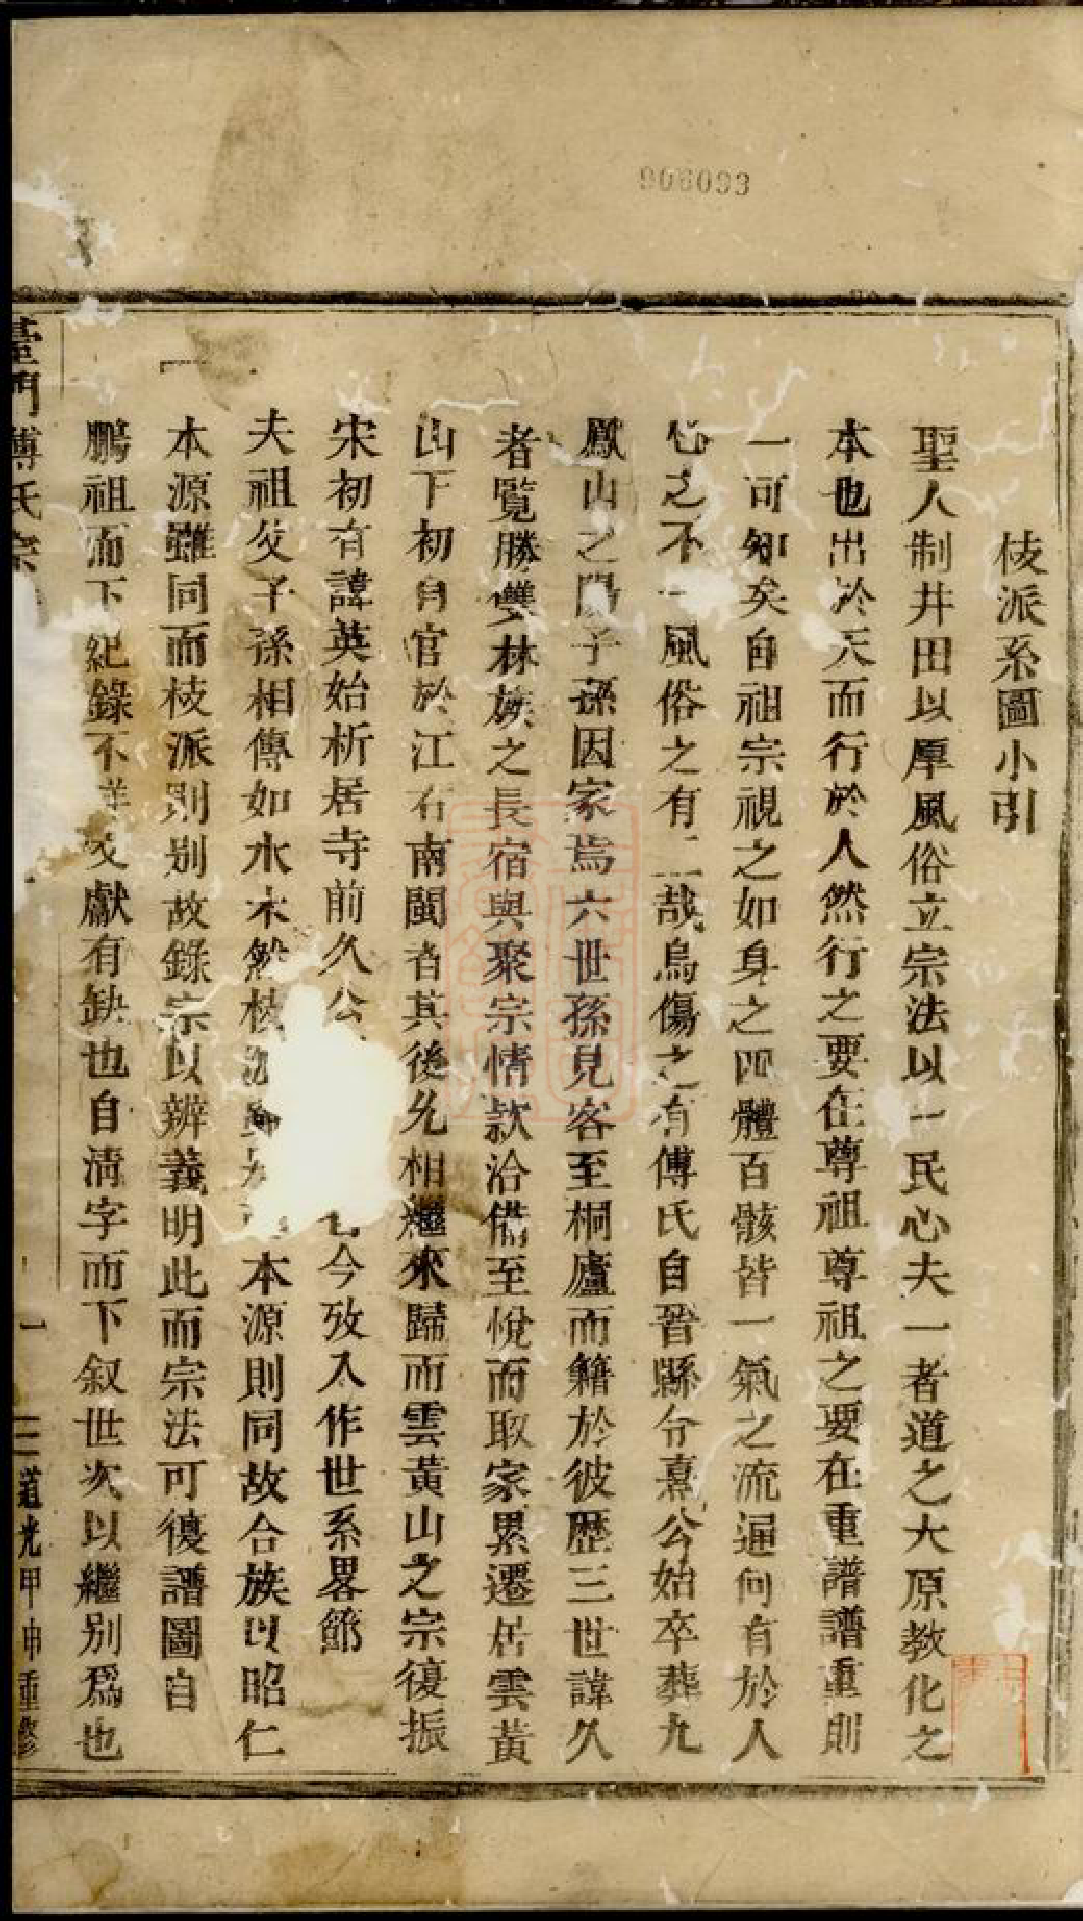 908093
枝派系圖小引
聖人制井田以厚風俗立宗法以一民心夫一者道之大原教化之
本也出於天而行於人然行之要在尊祖尊祖之要在重譜譜重則
一可知矣自祖宗視之如身之四體百骸皆一氣之流通何有於人
心之不一風俗之有二哉烏傷之有傅氏自晉縣令熹公始卒葬九
鳳山之陽子孫因家焉六世孫見客至桐廬而籍於彼歷三世諱久
者覽勝雙林族之長宿與聚宗情款洽備至悅而取家累遷居雲黃
山下初自官於江右南閩者其後允相繼來歸而雲黃山之宗復振
宋初有諱英始析居寺前久公今攷入作世系畧節
夫祖父子孫相傳如水木然枝派本源則同故合族以昭仁
本源雖同而枝派則别故錄宗以辨義明此而宗法可復譜圖自
鵬祖而下紀錄不詳文獻有缺也自清字而下叙世次以繼别爲也
臺門傅氏宗
一
道光甲申重修